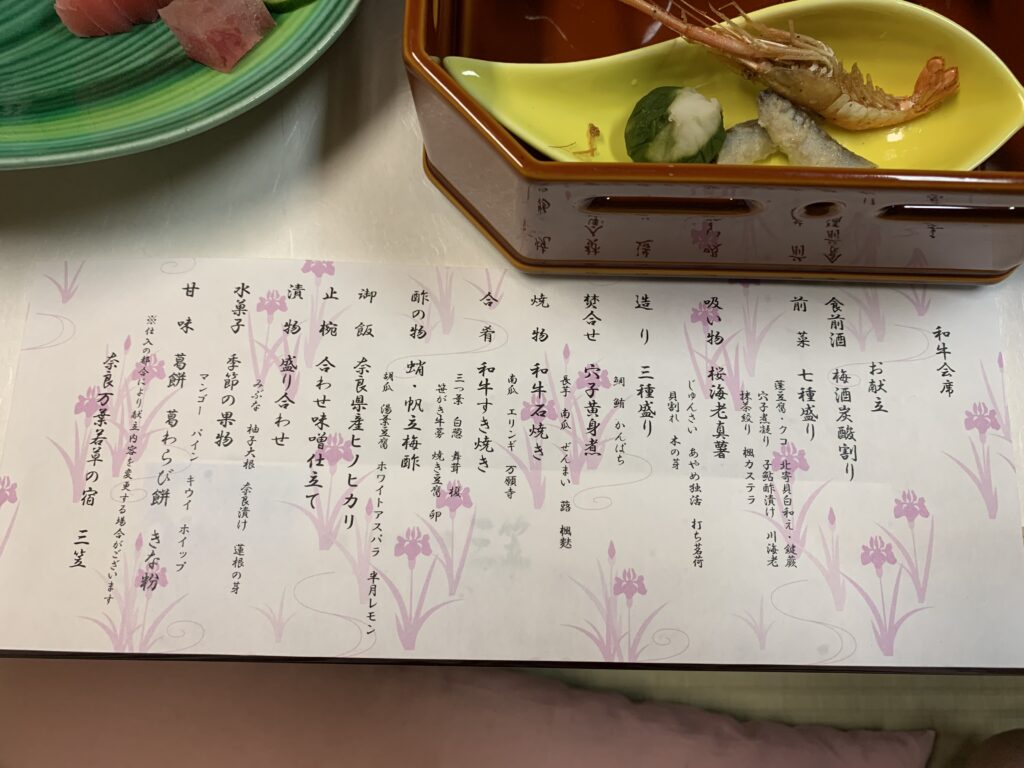 和牛会席
お献立
食前酒　梅酒炭酸割り
前菜　七種盛り
蓬豆腐・クコ　北寄貝白和え・鍵蕨
穴子煮凝り　子鮎酢漬け　川海老
抹茶絞り　楓カステラ
吸い物　桜海老真薯
じゅんさい　あやめ独活　打ち茗荷
貝割れ　木の芽
造り　三種盛り
鯛　鮪　かんぱち
焚合せ　穴子黄身煮
長芋　南瓜　ぜんまい　蕗　楓麩
焼物　和牛石焼き
南瓜　エリンギ　万願寺
合肴　和牛すき焼き
三つ葉　白葱　舞茸　揚
笹がき牛蒡　焼き豆腐　卵
酢の物　蛸・帆立梅酢
胡瓜　湯葉豆腐　ホワイトアスパラ　半月レモン
御飯　奈良県産ヒノヒカリ
止椀　合わせ味噌仕立て
漬物　盛り合わせ
みぶな　柚子大根　奈良漬け　蓮根の芽
水菓子　季節の果物
マンゴー　パイン　キウイ　ホイップ
甘味　葛餅　葛わらび餅　きな粉
※仕入の都合により献立内容を変更する場合がございます
奈良　万葉若草の宿　三笠